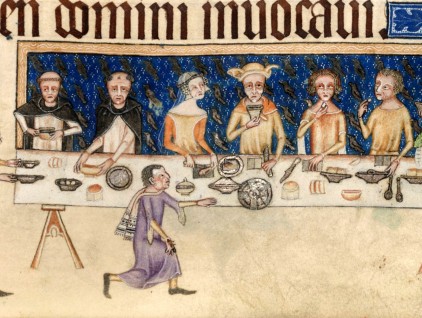 en domini inuocaui